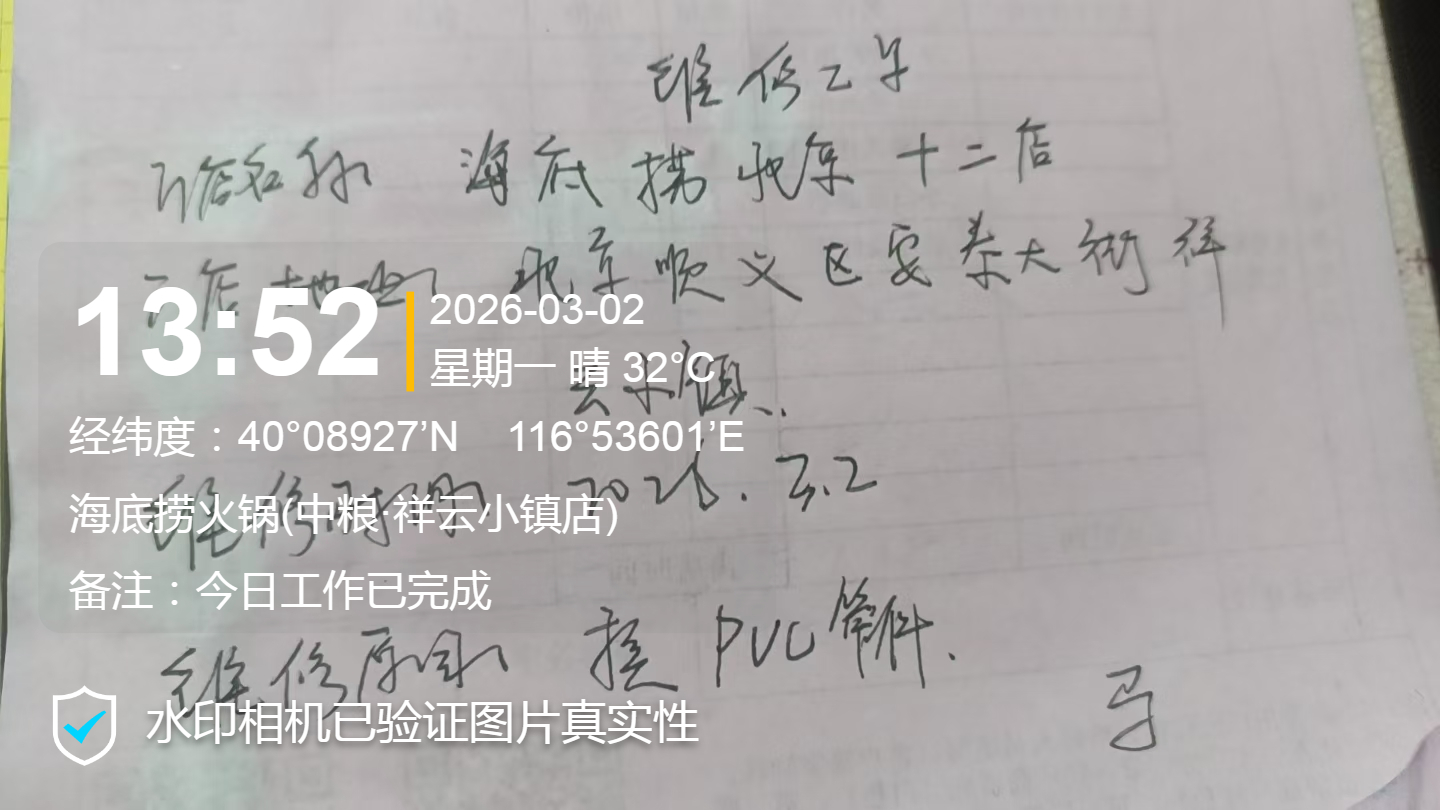 维修工单
门店名称 海底捞北京十二店
门店地址 北京顺义区安泰大街祥
云小镇..
维修时间 2026.3.2
维修原因 换PVC管件.
13:52
2026-03-02
星期一 晴 32°C
经纬度：40°08927’N 116°53601’E
海底捞火锅(中粮·祥云小镇店)
备注：今日工作已完成
水印相机已验证图片真实性